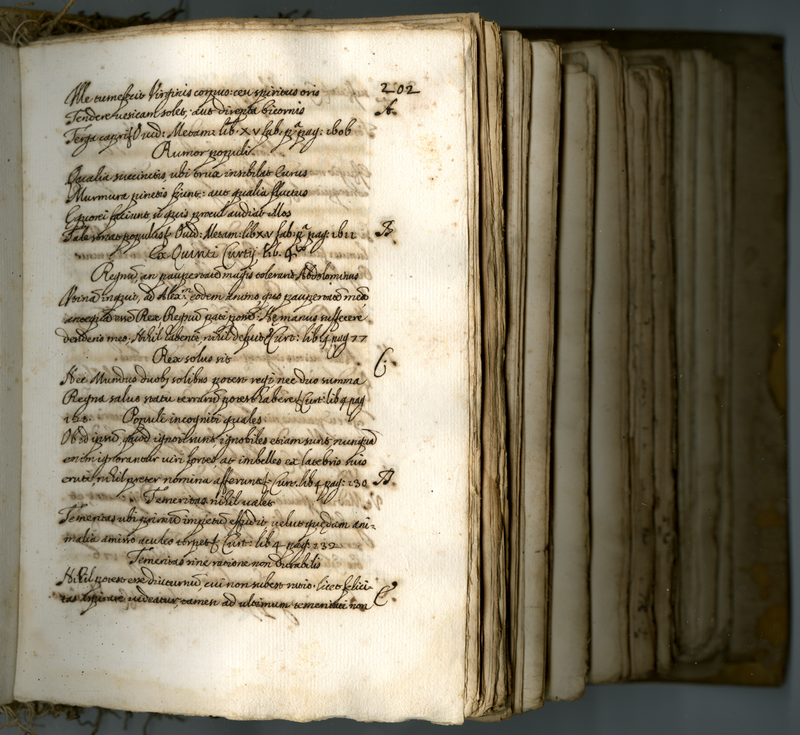 Me tumefecit Virginis corpus: ceu spiritus oris 202
Tendere vesicam solet, aut direpta bicornis A.
Terga capri Ovid: Metam: lib. XV fab. pª pag: 1606
Rumor populi.
Qualia succinctis, ubi trux insibilat Eurus
Murmura pinetis fiunt: aut qualia fluctus
Equorei faciunt, si quis procul audiat illos
Tale sonat populus Ovid: Metam: lib XV fab: pª pag: 1611 B.
Ex Quinti Curtij lib. 4º
Regnū, an paupertatē magis toleraris Abdolominus
inquit, ad Alexm eodem animo quo paupertatē meā
esse Rex Regnū pati possē. Hę manus suffecere
desiderio meo. Nihil habenti nihil defuit Curt: lib 4 pag 77
Rex solus sit C.
Nec Mundus duobs solibus potest regi nec duo summa
Regna salvo statu terrarū potest habere Curt: lib 4 pag
128. Populi incogniti quales
Obsd invū quod ignort sunt ignobiles etiam sunt, nunquā
enim ignorantur viri fortes at imbelles ex latebris suis
eruti, nihil preter nomina afferunt Curt. lib 4 pag: 230 D.
Temeritas nihil valet
Temeritas ubi primū impetū effudit, velut quędam ani-
malia amisso aculeo torpet Curt: lib 4 pag: 232
Temeritas sine ratione non durabilis
Nihil potest esse diuturnū, cui non subest ratio. licet felici-
tas aspirare videatur, tamen ad ultimum temeritati non E.